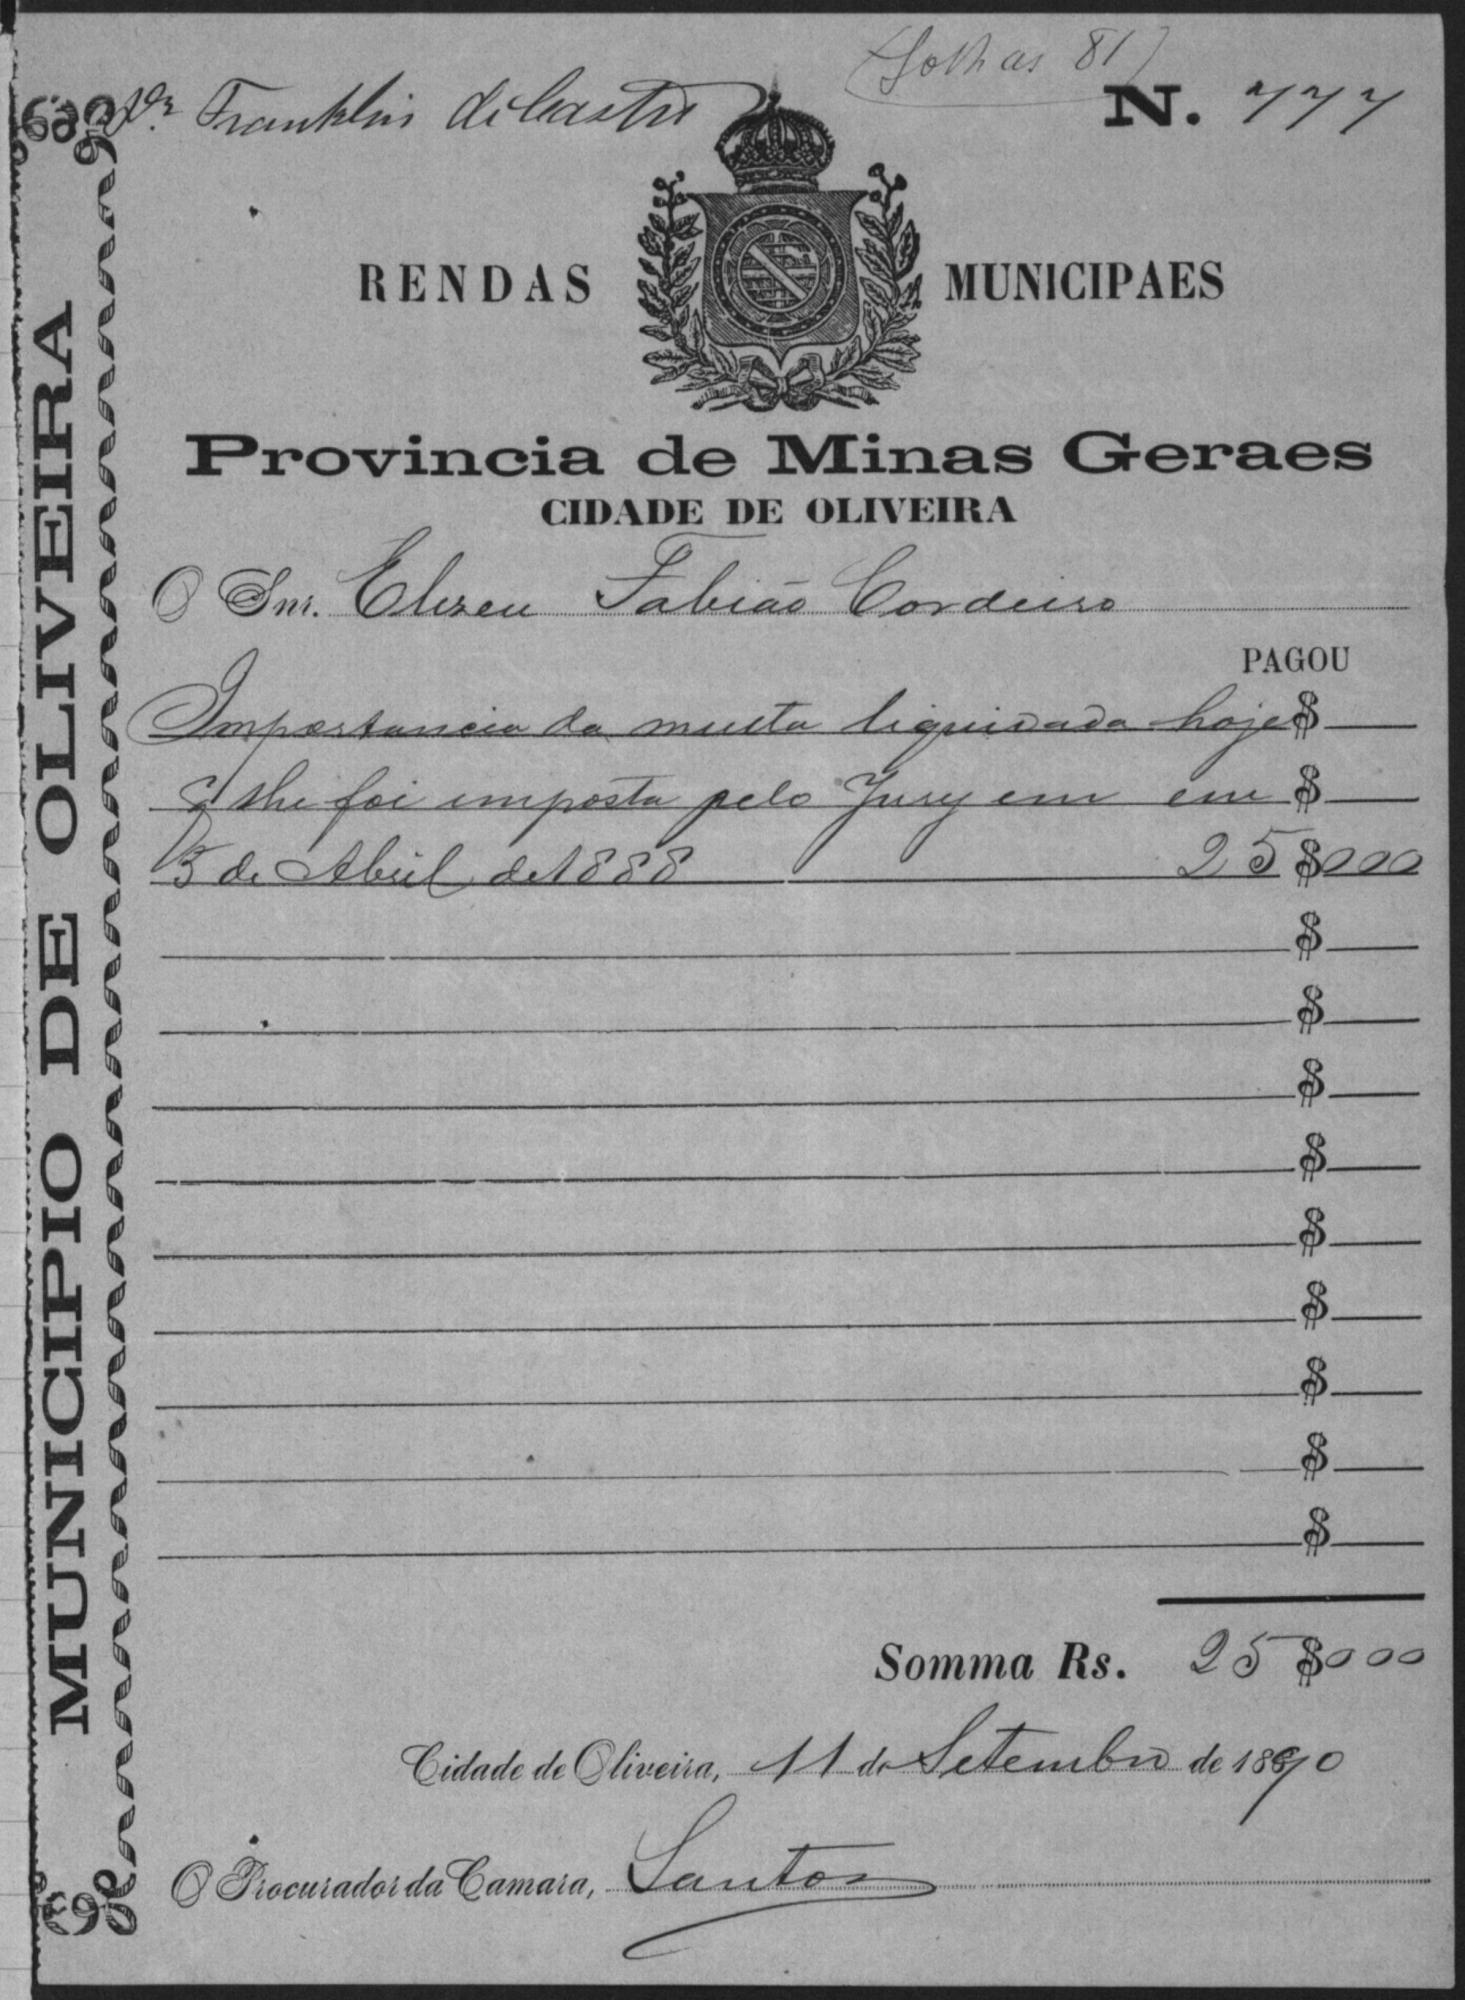 (folhas 81)
Dr. Franklin de Castro
N. 777
RENDAS MUNICIPAES
Provincia de Minas Geraes
CIDADE DE OLIVEIRA
O Snr. Elizeu Fabião Cordeiro
PAGOU
Importancia da multa liquidada hoje $
q lhe foi imposta pelo Jury em em $
5 de Abril de 1888 25$000
$
$
$
$
$
$
$
$
$
Somma Rs. 25$000
Cidade de Oliveira, 11 de Setembro de 1890
O Procurador da Camara, Santos
MUNICIPIO DE OLIVEIRA